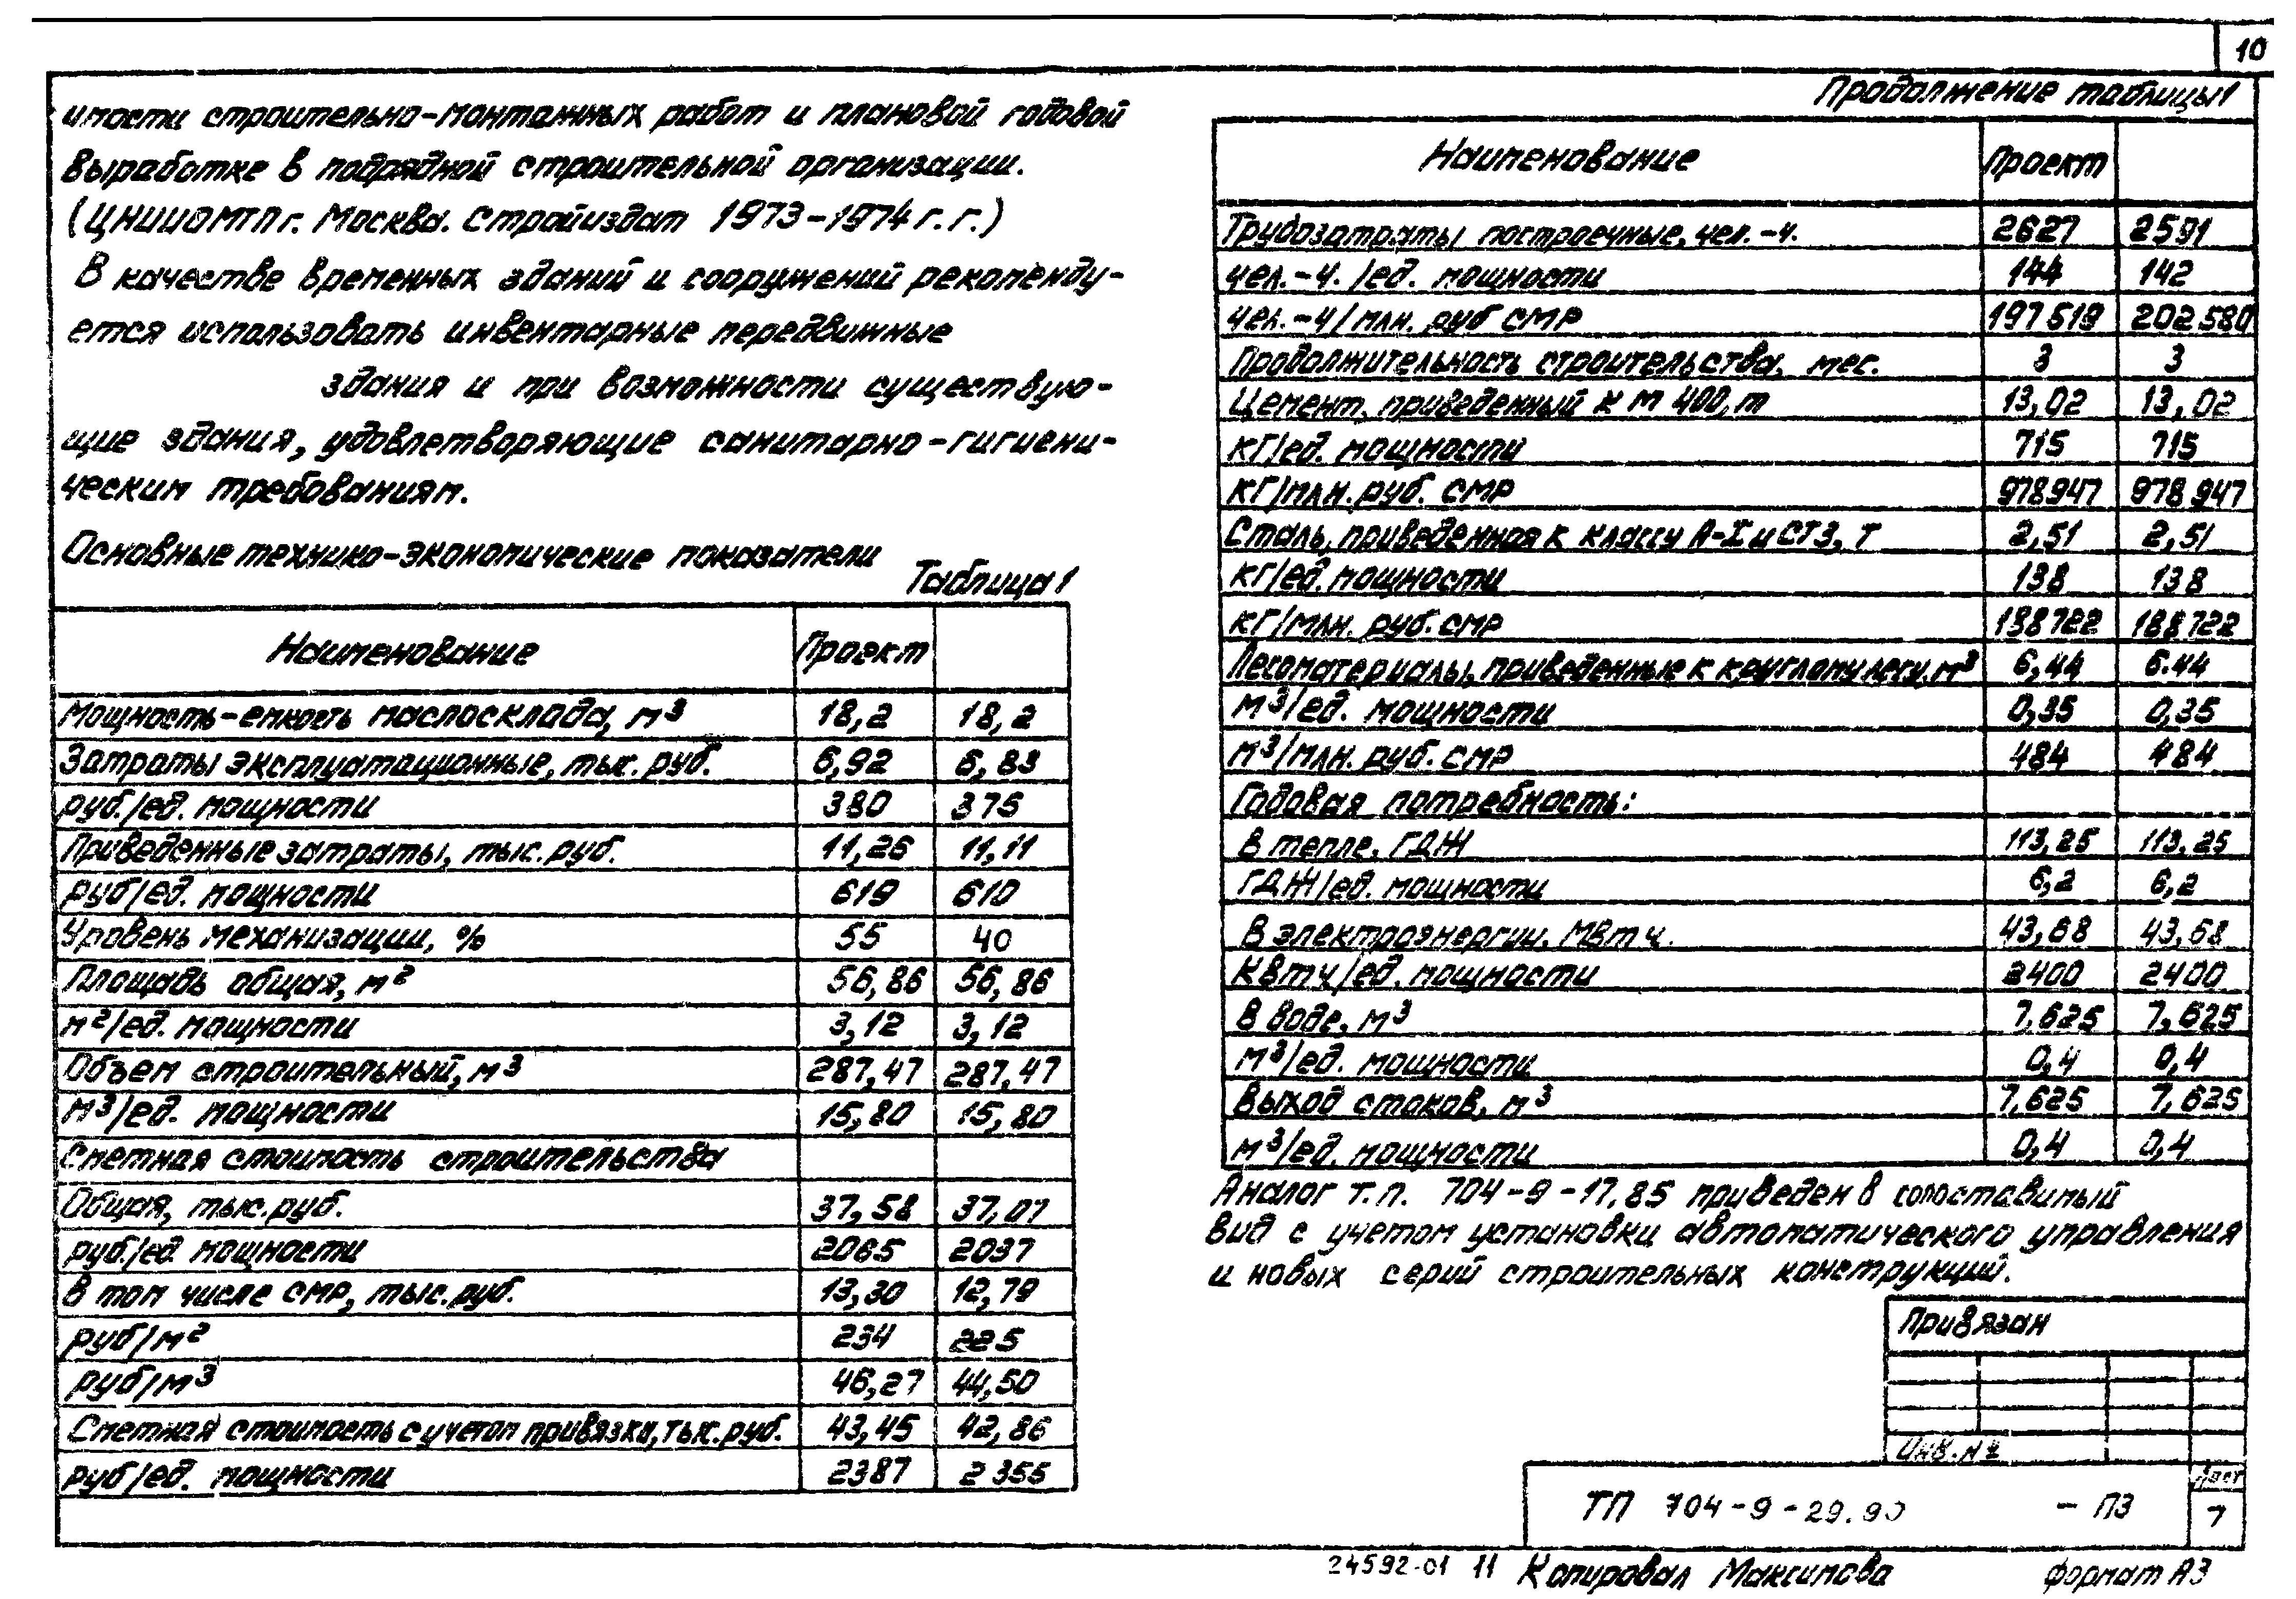 10
имости строительно-монтажных работ и плановой годовой
выработке в подрядной строительной организации.
(ЦНИИОМТП г. Москва. Стройиздат 1973-1974 г.г.)
В качестве временных зданий и сооружений рекоменду-
ется использовать инвентарные передвижные
здания и при возможности существую-
щие здания, удовлетворяющие санитарно-гигиени-
ческим требованиям.
Основные технико-экономические показатели
Таблица 1
Наименование Проект
Мощность-емкость маслосклада, м³ 18,2 18,2
Затраты эксплуатационные, тыс. руб. 6,92 6,83
руб./ед. мощности 380 375
Приведенные затраты, тыс. руб. 11,26 11,11
руб/ед. мощности 619 610
Уровень механизации, % 55 40
Площадь общая, м² 56,86 56,86
м²/ед. мощности 3,12 3,12
Объем строительный, м³ 287,47 287,47
м³/ед. мощности 15,80 15,80
Сметная стоимость строительства
Общая, тыс. руб. 37,58 37,07
руб./ед. мощности 2065 2037
В том числе СМР, тыс. руб. 13,30 12,79
руб/м² 234 225
руб/м³ 46,27 44,50
Сметная стоимость с учетом привязки, тыс. руб. 43,45 42,86
руб/ед. мощности 2387 2355
Продолжение таблицы 1
Наименование Проект
Трудозатраты построечные, чел.-ч. 2627 2591
чел.-ч./ед. мощности 144 142
чел.-ч/млн. руб СМР 197519 202580
Продолжительность строительства, мес. 3 3
Цемент, приведенный к М 400, т 13,02 13,02
кг/ед. мощности 715 715
кг/млн. руб. СМР 978947 978947
Сталь, приведенная к классу А-I и СТ3, Т 2,51 2,51
кг/ед. мощности 138 138
кг/млн. руб. СМР 188722 188722
Лесоматериалы, приведенные к круглому лесу, м³ 6,44 6.44
м³/ед. мощности 0,35 0,35
м³/млн. руб. СМР 484 484
Годовая потребность:
В тепле, ГДЖ 113,25 113,25
ГДЖ/ед. мощности 6,2 6,2
В электроэнергии, МВт ч. 43,68 43,68
КВт ч/ед. мощности 2400 2400
В воде, м³ 7,625 7,625
м³/ед. мощности 0,4 0,4
Выход стоков, м³ 7,625 7,625
м³/ед. мощности 0,4 0,4
Аналог т.п. 704-9-17.85 приведен в сопоставимый
вид с учетом установки автоматического управления
и новых серий строительных конструкций.
Привязан
Инв. №
ТП 704-9-29.90 - ПЗ
Лист
7
24592-01 11 Копировал Максимова формат А3